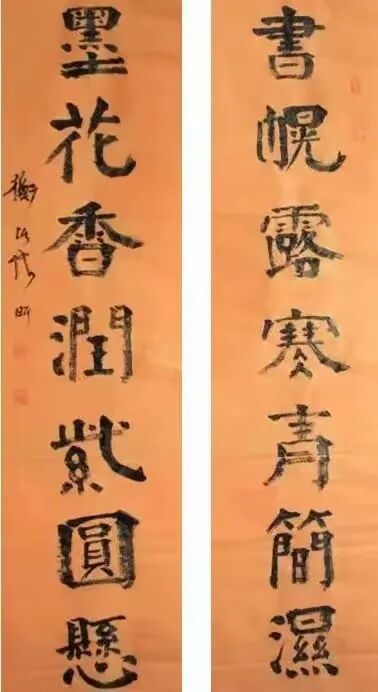 書幌露寒青簡濕
墨花香潤紫圓懸
昕